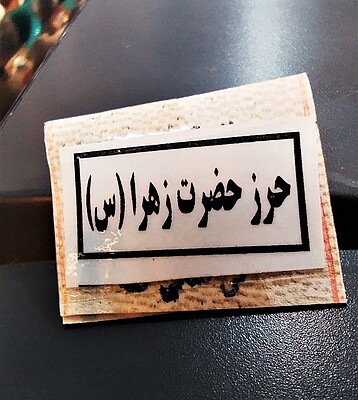 حرز حضرت زهرا (س)